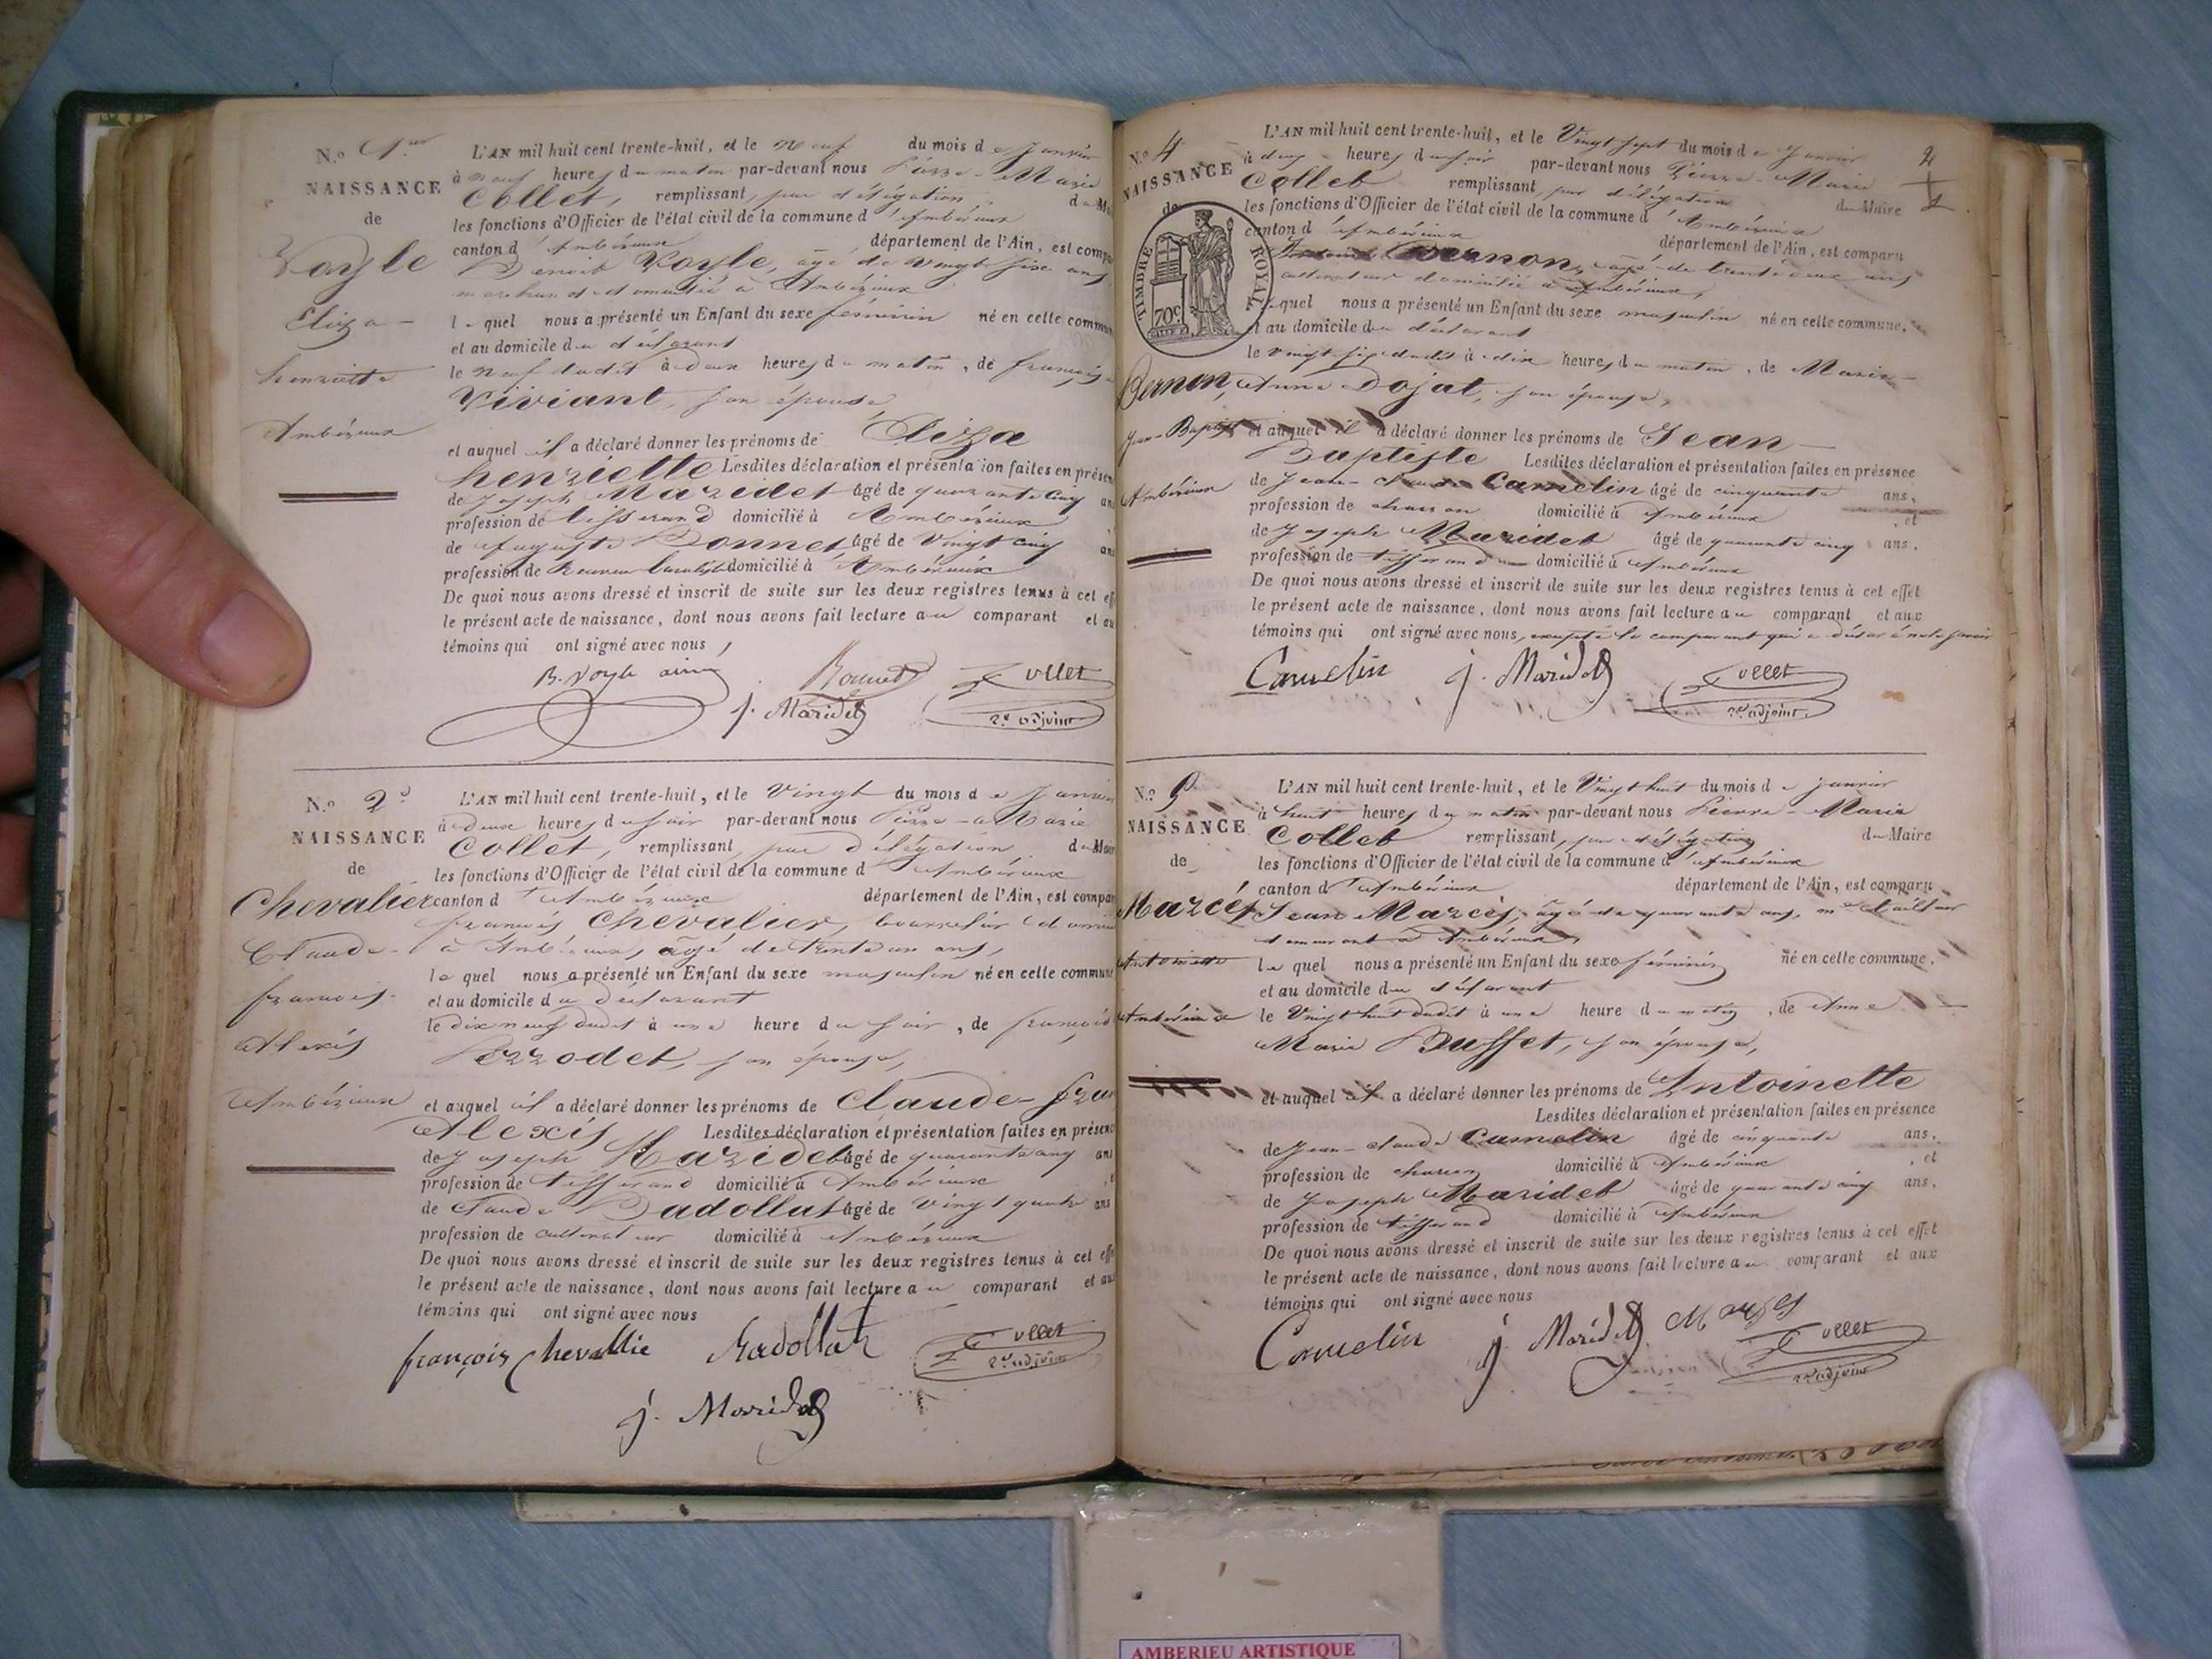 N.o 1er
NAISSANCE
de
Voyle
Eliza
henriette
Ambérieux
L'AN mil huit cent trente-huit, et le neuf du mois de Janvier
à neuf heures du matin par-devant nous Pierre-Marie
Collet, remplissant, par délégation du Ma
les fonctions d'Officier de l'état civil de la commune d'Ambérieux
canton d'Ambérieux département de l'Ain, est comp
Benoit Voyle, âgé de vingt six ans
marchand domicilié à Ambérieux
lequel nous a présenté un Enfant du sexe féminin né en cette commun
et au domicile du déclarant
le neuf dudit à deux heures du matin, de françoise
Viviant, son épouse
et auquel il a déclaré donner les prénoms de Eliza
henriette Lesdites déclaration et présentation faites en présen
de Joseph Maridet âgé de quarante cinq an
profession de tisserand domicilié à Ambérieux
de Auguste Bonnet âgé de vingt cinq an
profession de domicilié à Ambérieux
De quoi nous avons dressé et inscrit de suite sur les deux registres tenus à cet eff
le présent acte de naissance, dont nous avons fait lecture au comparant et au
témoins qui ont signé avec nous,
B. Voyle ainé Bonnet Collet
j. Maridet 2e adjoint
N.o 2e
NAISSANCE
de
Chevalier
Claude-
françois-
Alexis
Ambérieux
L'AN mil huit cent trente-huit, et le vingt du mois de Janvier
à deux heures du soir par-devant nous Pierre-Marie
Collet, remplissant, par délégation du Mair
les fonctions d'Officier de l'état civil de la commune d'Ambérieux
canton d'Ambérieux département de l'Ain, est compar
françois Chevalier, bourrelier domici
à Ambérieux, âgé de trente un ans,
lequel nous a présenté un Enfant du sexe masculin né en cette commune
et au domicile du déclarant
le dix neuf dudit à une heure du soir, de françoise
Perrodet, son épouse,
et auquel il a déclaré donner les prénoms de Claude-fran
Alexis Lesdites déclaration et présentation faites en présenc
de Joseph Maridet âgé de quarante cinq ans
profession de tisserand domicilié à Ambérieux
de Claude Badollat âgé de vingt quatre ans
profession de cultivateur domicilié à Ambérieux
De quoi nous avons dressé et inscrit de suite sur les deux registres tenus à cet eff
le présent acte de naissance, dont nous avons fait lecture au comparant et aux
témoins qui ont signé avec nous
françois Chevallie Badollat Collet
2e adjoint
j. Maridet
N.o 4
NAISSANCE
de
TIMBRE ROYAL
70c
Bernon,
Jean-Baptiste
Ambérieux
2
L'AN mil huit cent trente-huit, et le Vingt sept du mois de Janvier
à deux heures du soir par-devant nous Pierre-Marie
Collet remplissant, par délégation du Maire
les fonctions d'Officier de l'état civil de la commune d'Ambérieux
canton d'Ambérieux département de l'Ain, est comparu
Bernon, âgé de trente deux ans
cultivateur domicilié à Ambérieux,
lequel nous a présenté un Enfant du sexe masculin né en cette commune,
et au domicile du déclarant
le vingt six dudit à dix heures du matin, de Marie-
Anne Dojat, son épouse,
et auquel il a déclaré donner les prénoms de Jean-
Baptiste Lesdites déclaration et présentation faites en présence
de Jean-Claude Camelin âgé de cinquante ans,
profession de charron domicilié à Ambérieux, et
de Joseph Maridet âgé de quarante cinq ans,
profession de tisserand domicilié à Ambérieux
De quoi nous avons dressé et inscrit de suite sur les deux registres tenus à cet effet
le présent acte de naissance, dont nous avons fait lecture au comparant et aux
témoins qui ont signé avec nous, excepté le comparant qui a déclaré ne le savoir
Camelin j. Maridet Collet
2e adjoint
N.o 5
NAISSANCE
de
Marcés
Antoinette
Ambérieux
L'AN mil huit cent trente-huit, et le Vingt huit du mois de janvier
à huit heures du matin par-devant nous Pierre-Marie
Collet remplissant, par délégation du Maire
les fonctions d'Officier de l'état civil de la commune d'Ambérieux
canton d'Ambérieux département de l'Ain, est comparu
Jean Marcés, âgé de quarante ans, md tailleur
demeurant à Ambérieux,
lequel nous a présenté un Enfant du sexe féminin né en cette commune,
et au domicile du déclarant
le Vingt huit dudit à une heure du matin, de Anne
Marie Buffet, son épouse,
et auquel il a déclaré donner les prénoms de Antoinette
Lesdites déclaration et présentation faites en présence
de Jean-Claude Camelin âgé de cinquante ans,
profession de charron domicilié à Ambérieux, et
de Joseph Maridet âgé de quarante cinq ans,
profession de tisserand domicilié à Ambérieux
De quoi nous avons dressé et inscrit de suite sur les deux registres tenus à cet effet
le présent acte de naissance, dont nous avons fait lecture au comparant et aux
témoins qui ont signé avec nous
Camelin j. Maridet Collet
2e adjoint
AMBERIEU ARTISTIQUE